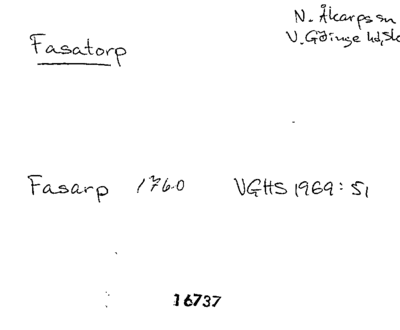 N. Åkarps sn
V. Göinge hd, Sk
Fasatorp
Fasarp 1760 VGHS 1969: 51
16737